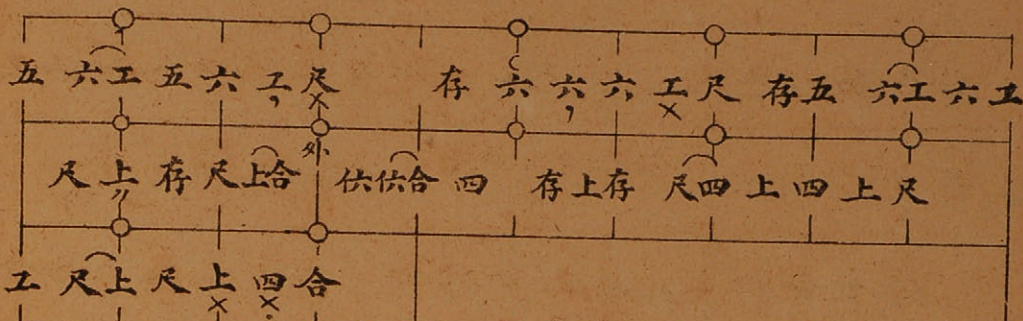 五六工五六工尺 存六六六工尺存五六工六工
尺上存尺上合 外 㐰㐰合四 存上存尺四上四上尺
工尺上尺上四合